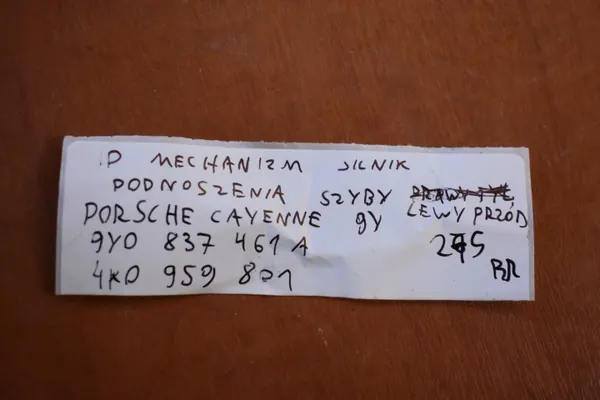 D MECHANIZM SILNIK
PODNOSZENIA SZYBY
PORSCHE CAYENNE 9Y LEWY PRZÓD
9Y0 837 461 A
4K0 959 801
RR